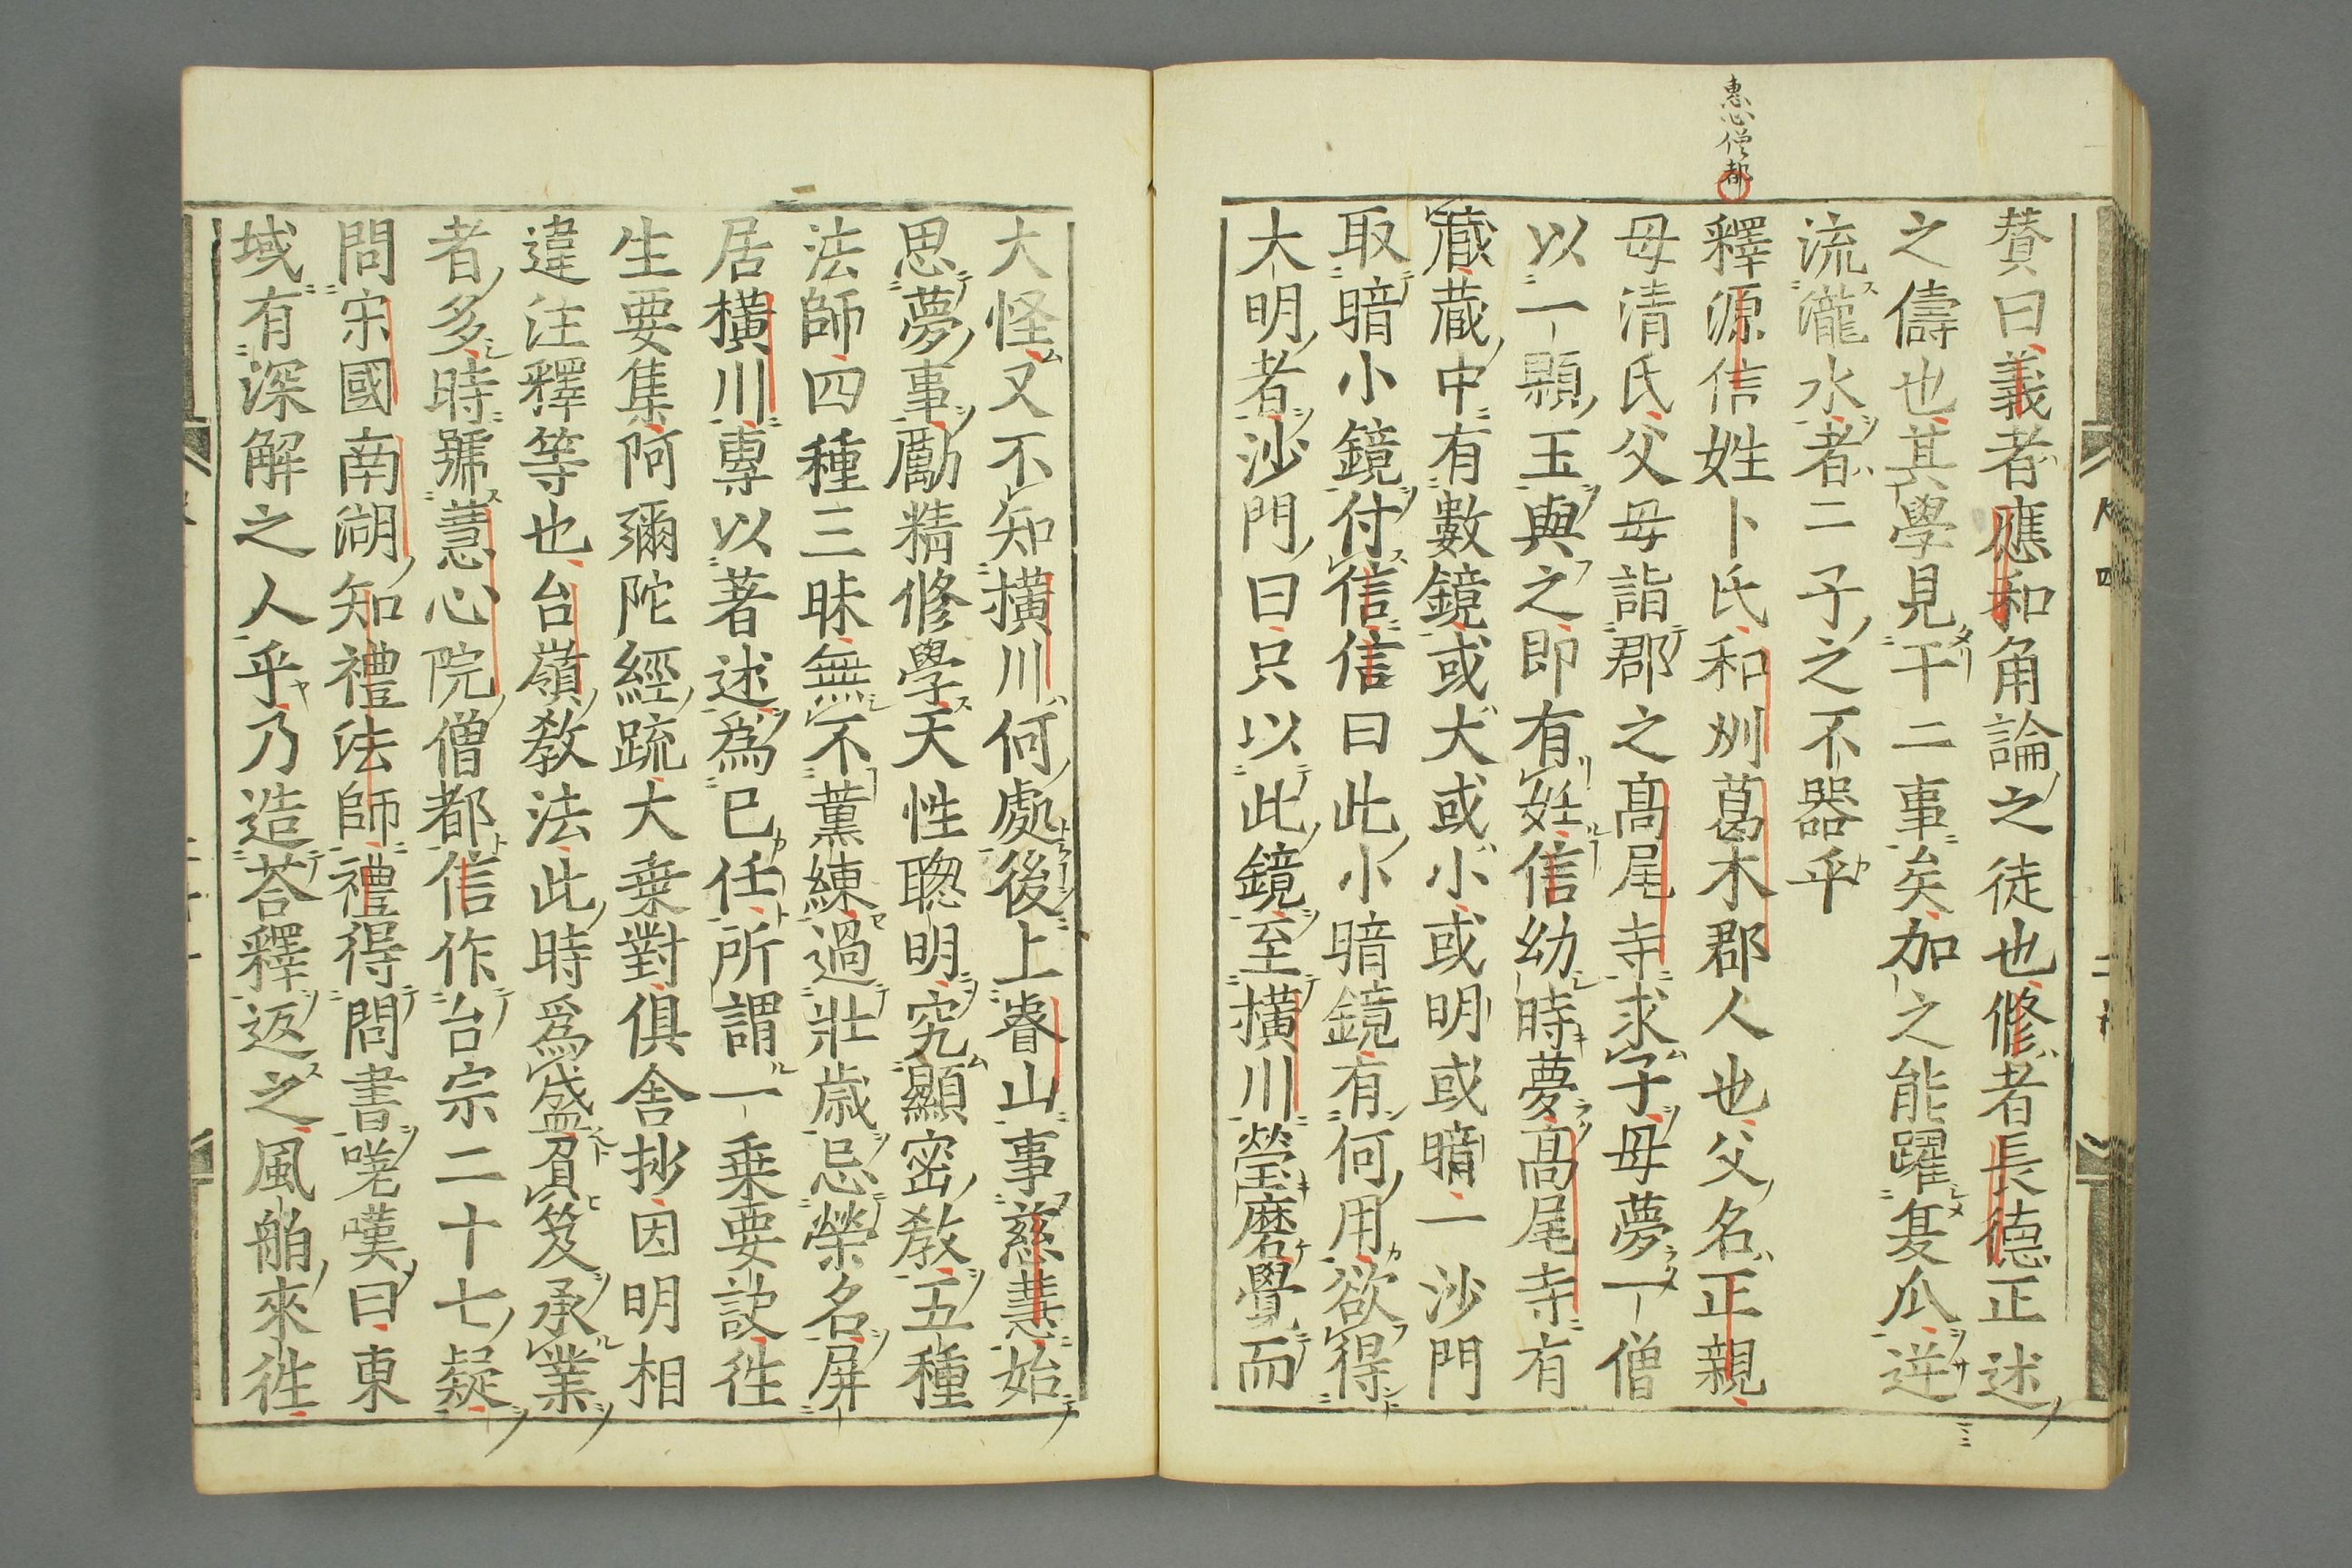 惠心僧都
賛曰義者應和角論之徒也修者長德正述
之儔也其學見干二事矣加之能躍㕛瓜逆
流瀧水者二子之不器乎
釋源信姓卜氏和州葛木郡人也父名正親
母清氏父母詣郡之髙尾寺求子母夢一僧
以一顆玉與之即有妊信幼時夢髙尾寺有
藏藏中有數鏡或大或小或明或暗一沙門
取暗小鏡付信信曰此小暗鏡有何用欲得
大明者沙門曰只以此鏡至横川瑩磨覺而
大怪又不知横川何處後上睿山事慈慧始
思夢事勵精修學天性聰明究顯密教五種
法師四種三昧無不薫練過壯歳忌榮名屏
居横川專以著述爲已任所謂一乗要訣徃
生要集阿彌陀經疏大乗對俱舎抄因明相
違注釋等也台嶺教法此時爲盛負笈承業
者多時號慧心院僧都信作台宗二十七疑
問宋國南湖知禮法師禮得問書嘆嘆曰東
域有深解之人乎乃造荅釋返之風舶來徃